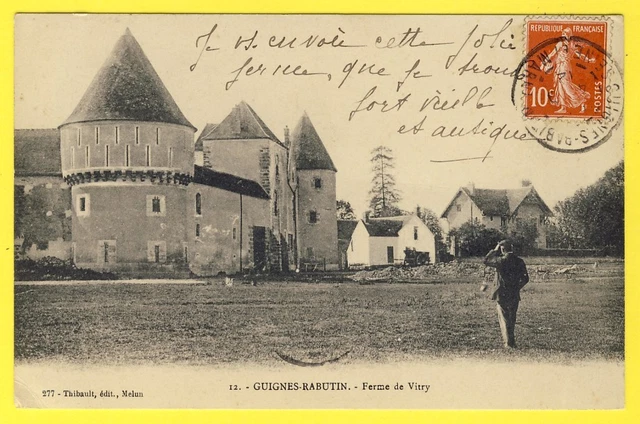 Je vs envoie cette jolie
ferme, que je trouve
fort vieille
et antique
REPUBLIQUE FRANÇAISE
10c
POSTES
12. - GUIGNES-RABUTIN. - Ferme de Vitry
277 - Thibault, édit., Melun